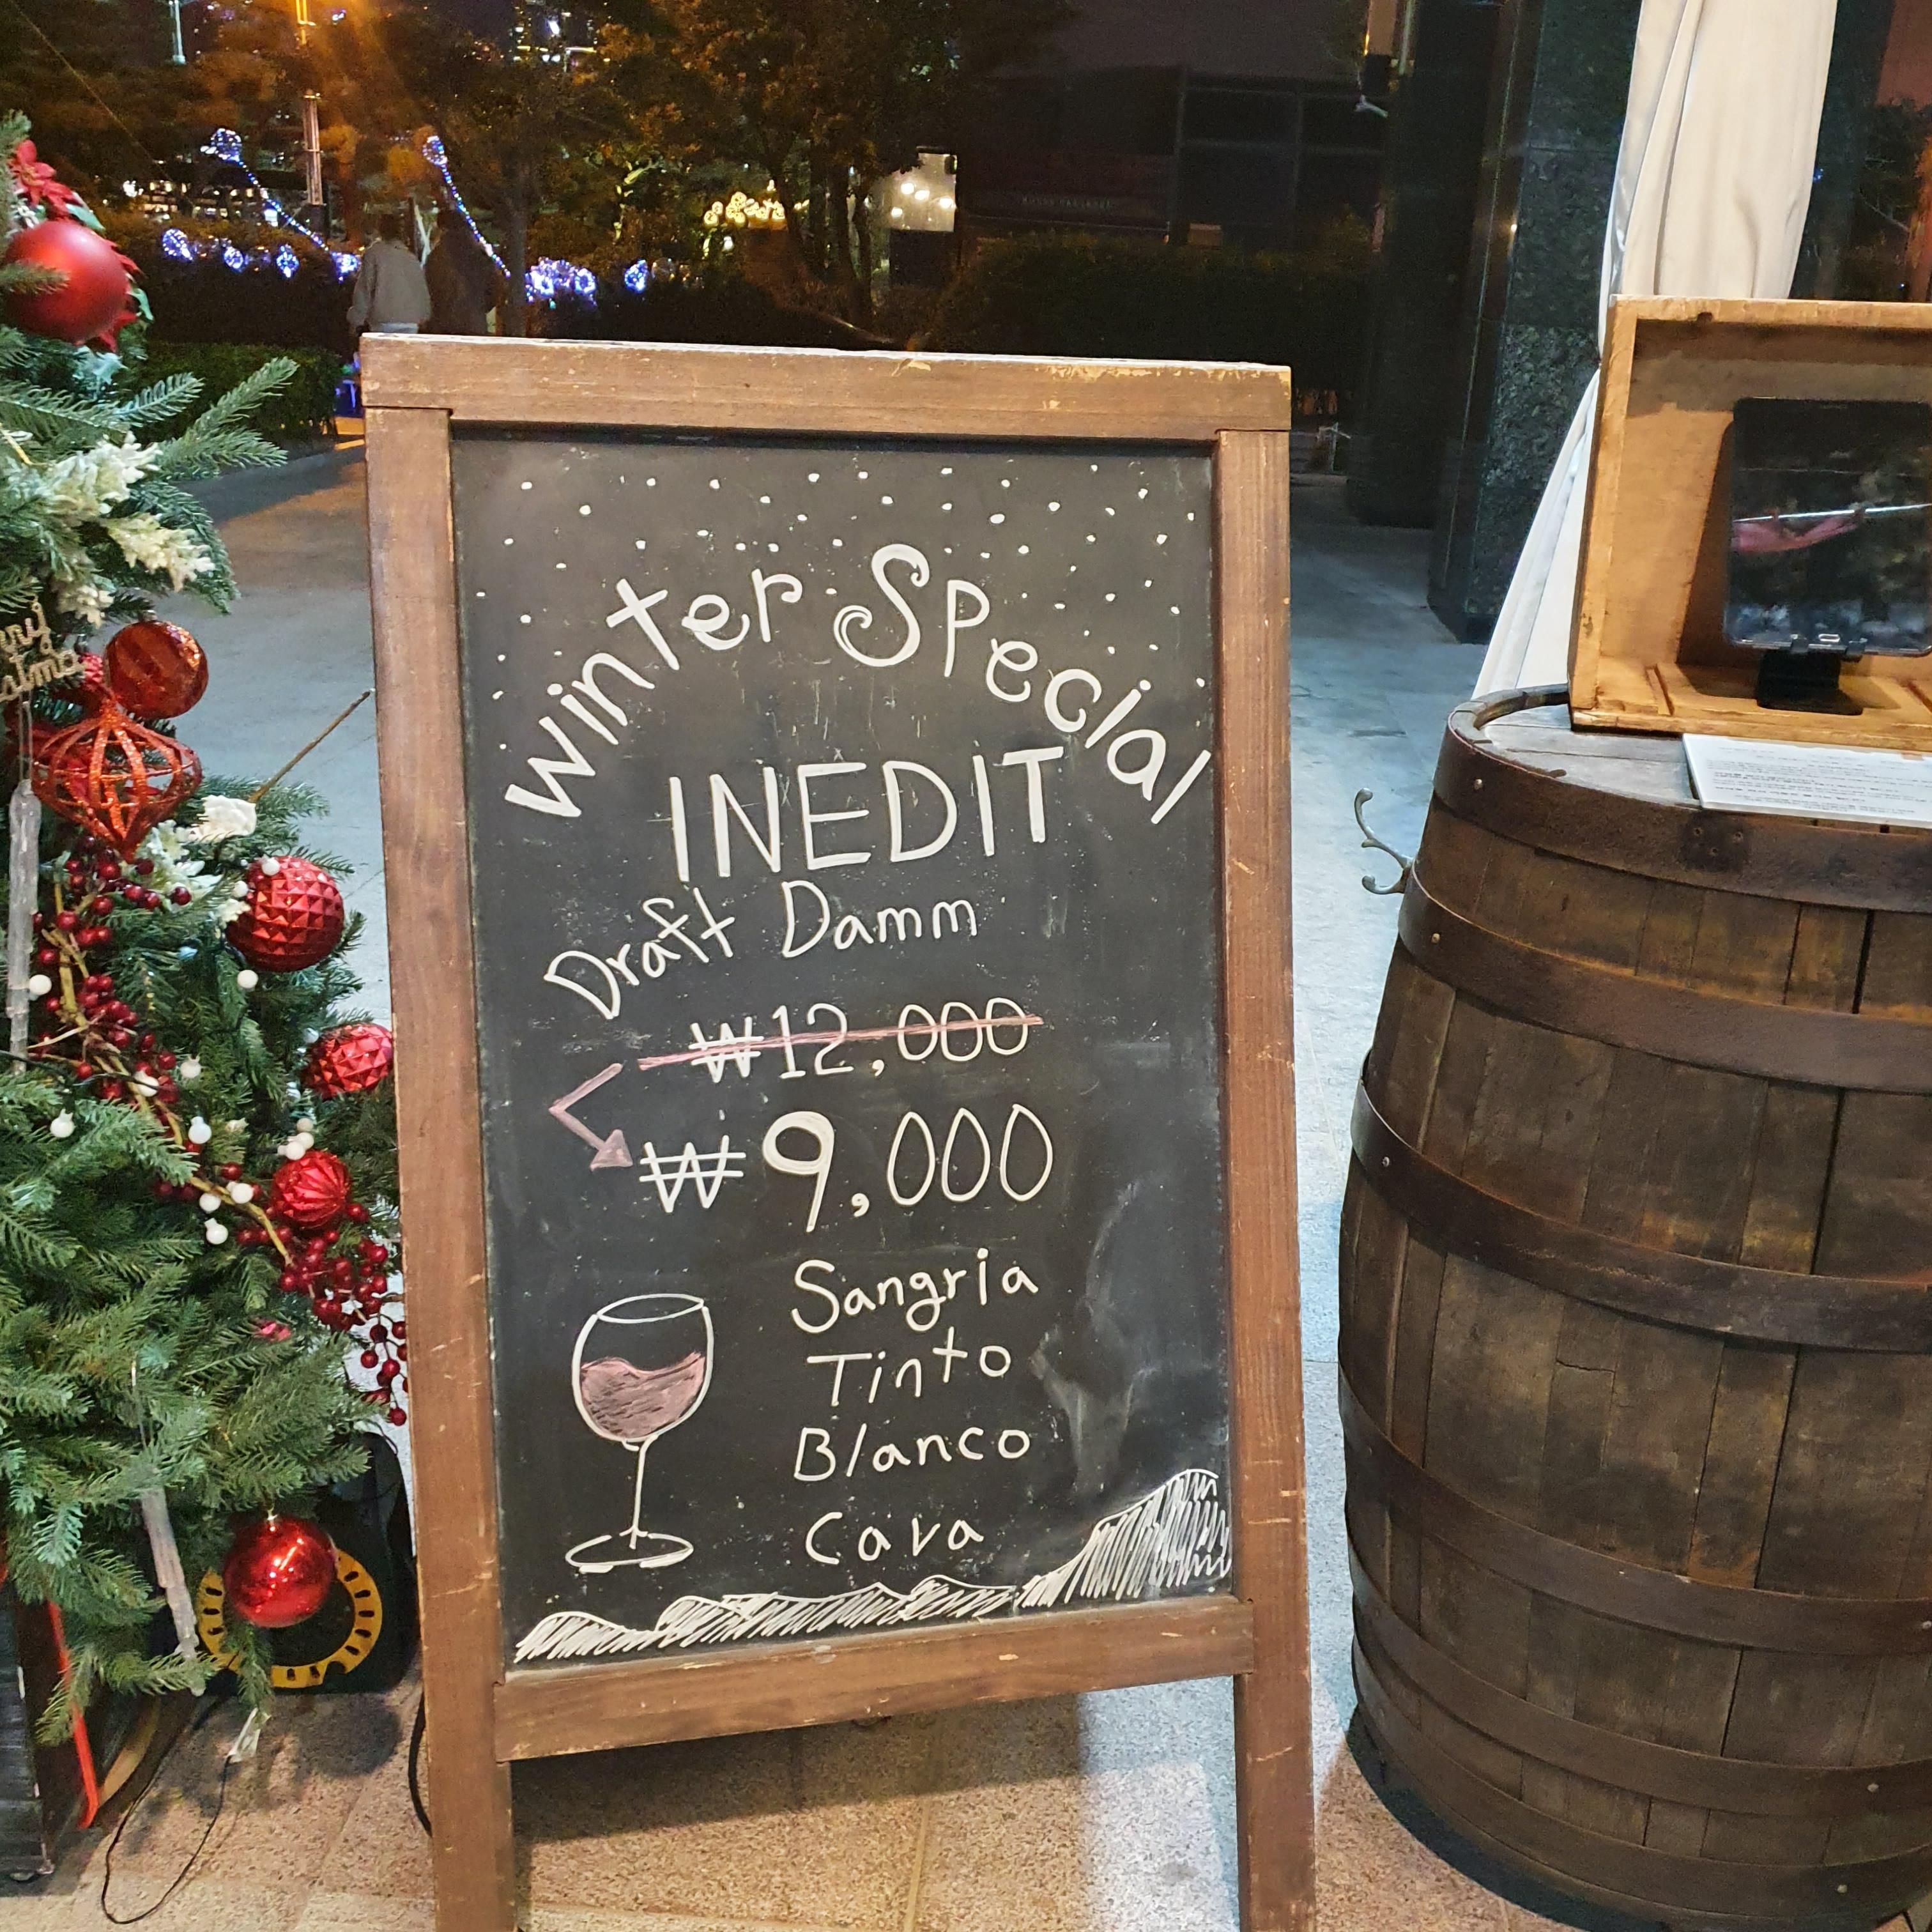 Winter Special
INEDIT
Draft Damm
₩12,000
₩9,000
Sangria
Tinto
Blanco
Cava